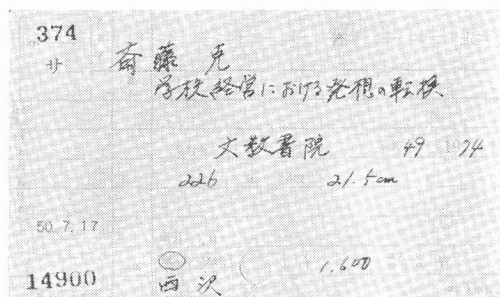 374
サ 斎藤 克
学校経営における発想の転換
文教書院 49 1974
226 21.5cm
50.7.17
14900 西沢 1.600